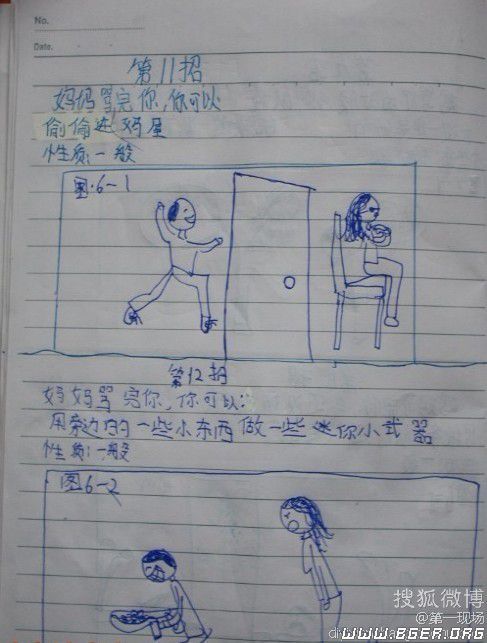 No.
Date.
第11招
妈妈骂完你,你可以
偷偷进妈屋
性质:一般
图·6-1
第12招
妈妈骂完你,你可以:
用旁边的一些小东西做一些迷你小武器
性质:一般
图6-2
搜狐微博
@第一现场
WWW.BGER.ORG